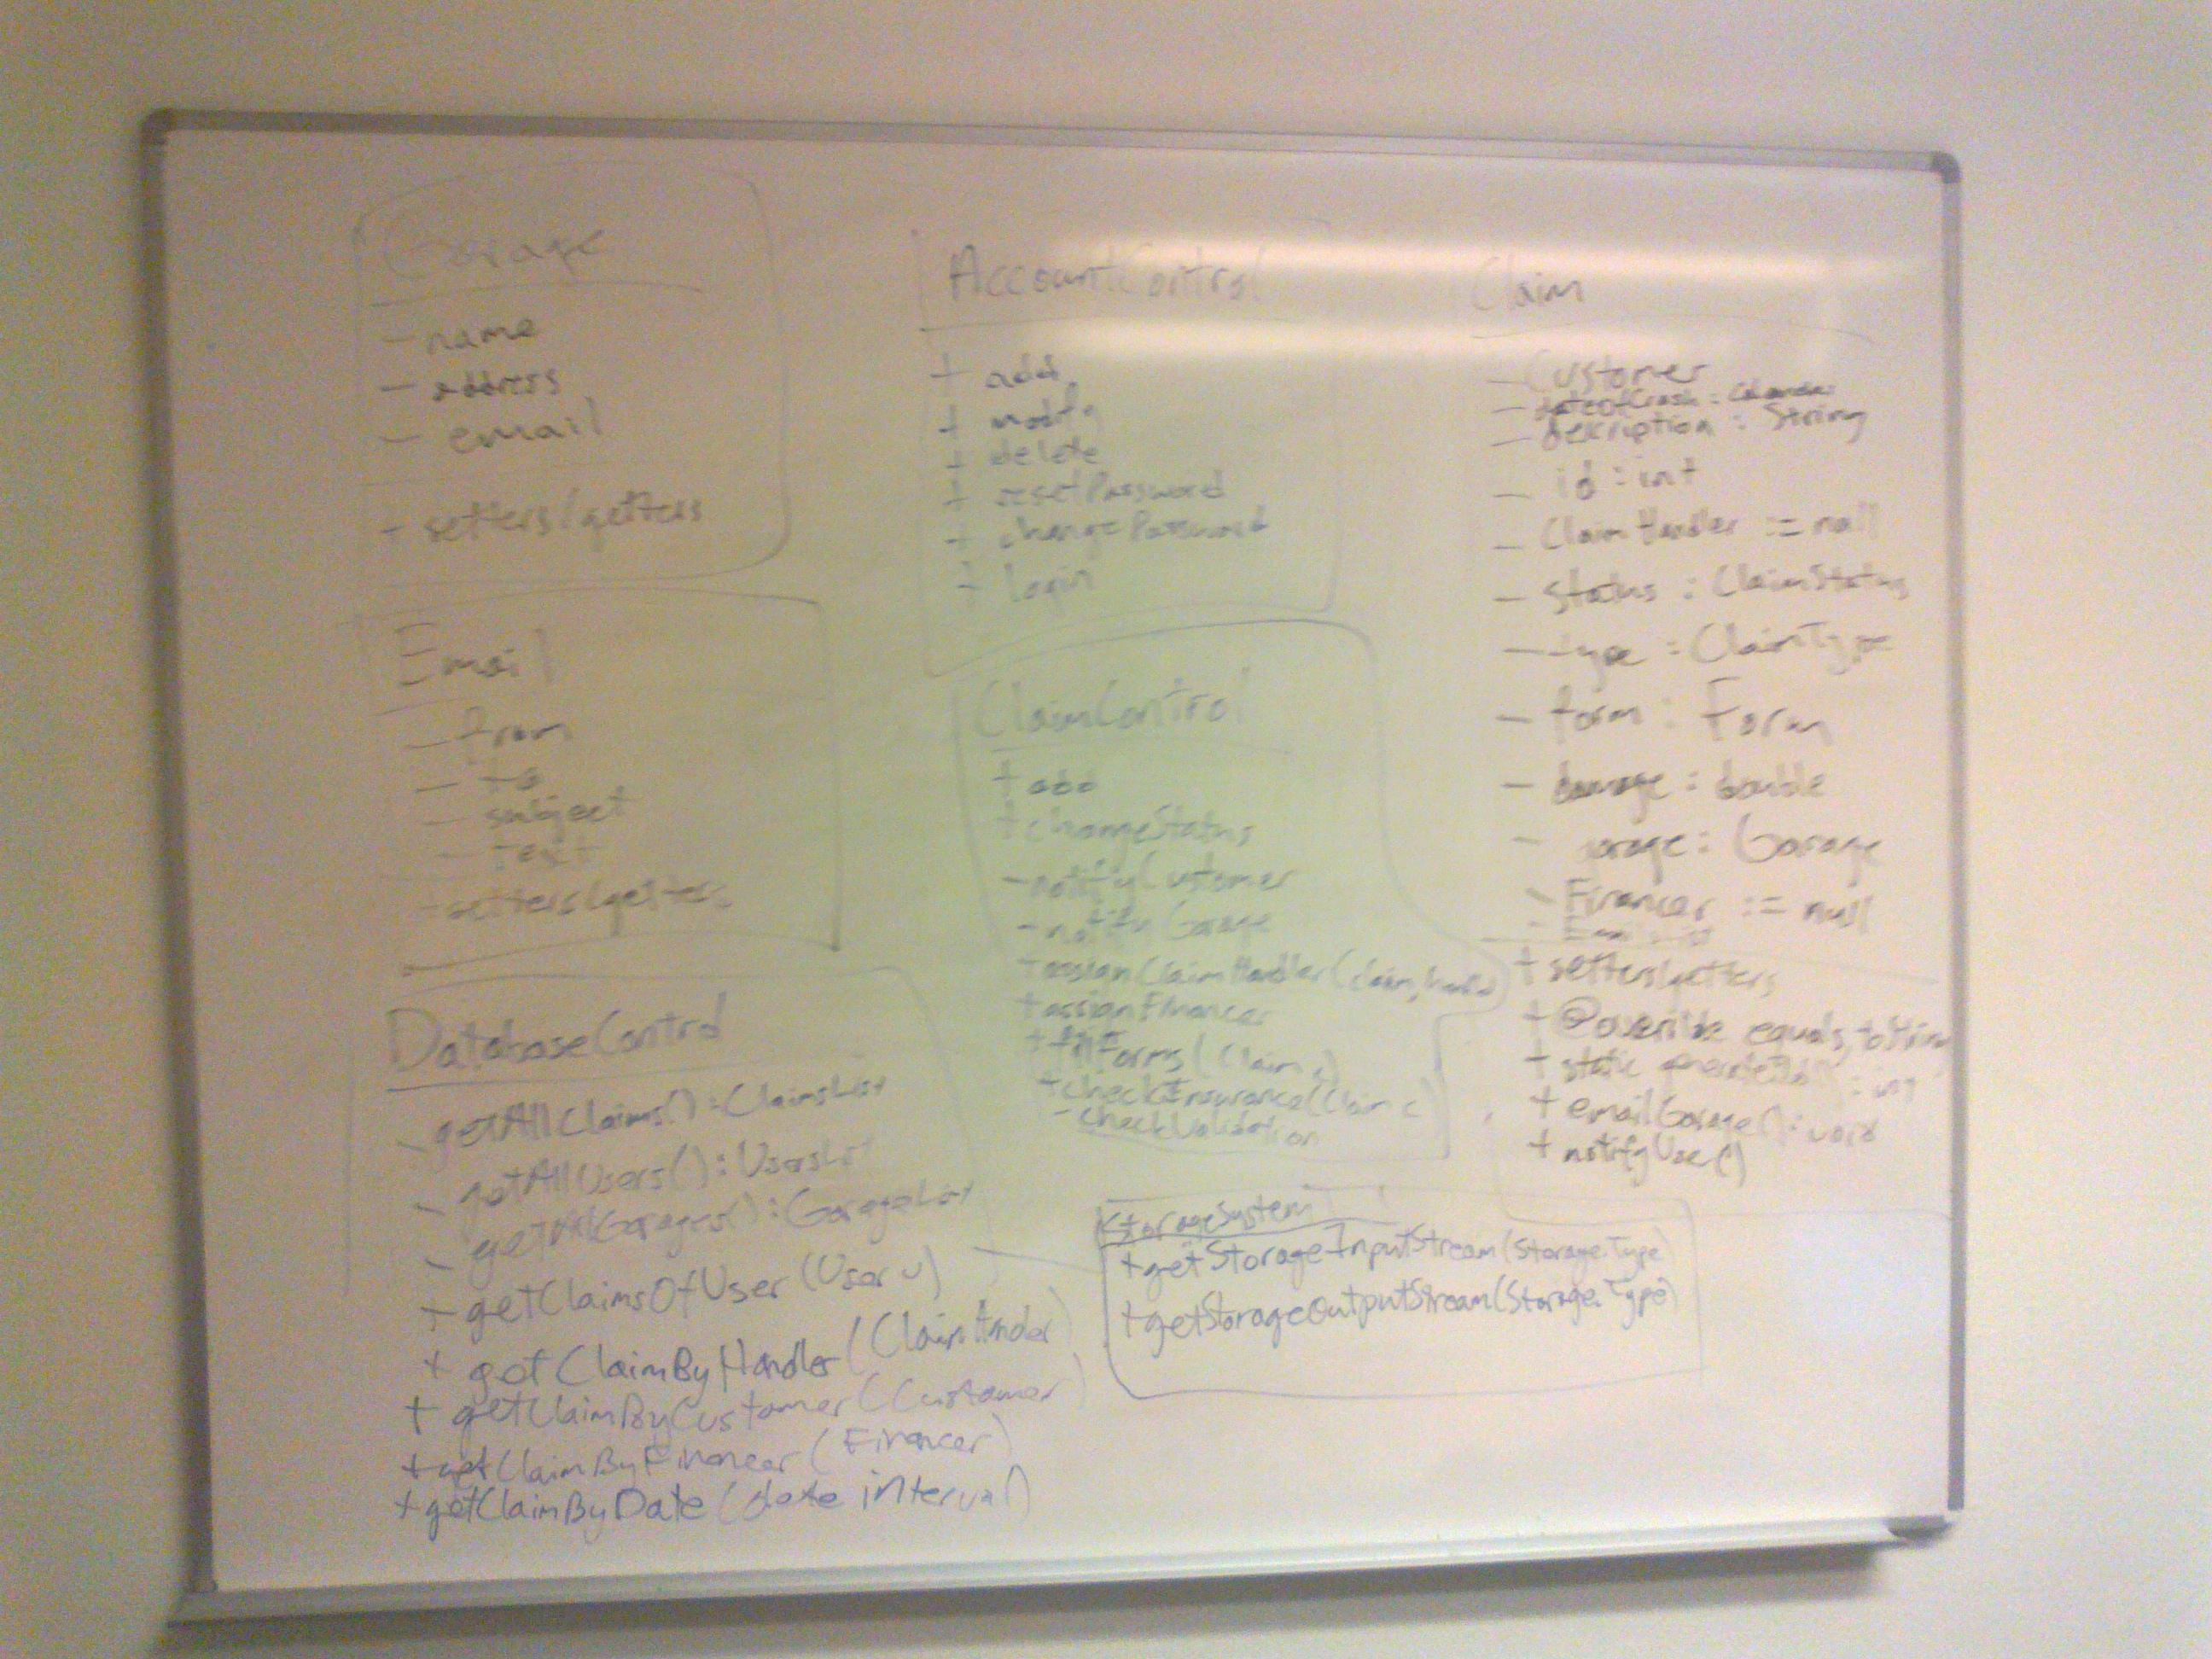 Garage
- name
- address
- email
+ setters/getters
Email
- from
- to
- subject
- text
+ setters/getters
DatabaseControl
- getAllClaims() : ClaimsList
- getAllUsers() : UsersList
- getAllGarages() : GarageList
+ getClaimsOfUser (User u)
+ getClaimByHandler (ClaimHnder)
+ getClaimByCustomer (Customer)
+ getClaimByFinancer (Financer)
+ getClaimByDate (date interval)
AccountControl
+ add
+ modify
+ delete
+ resetPassword
+ changePassword
+ login
ClaimControl
+ add
+ changeStatus
- notifyCustomer
- notifyGarage
+ assignClaimHandler (claim,
+ assignFinancer
+ fillForms (Claim c)
+ checkInsurance (Claim c)
- checkValidation
StorageSystem
+ getStorageInputStream (Storage.Type)
+ getStorageOutputStream (Storage.Type)
Claim
- Customer
- dateofCrash : Calendar
- description : String
- id : int
- ClaimHandler := null
- Status : ClaimStatus
- type : ClaimType
- form : Form
- damage : double
- garage : Garage
- Financer := null
+ setters/getters
+ @override equals, toString
+ static : int
+ emailGarage() : void
+ notifyUse()